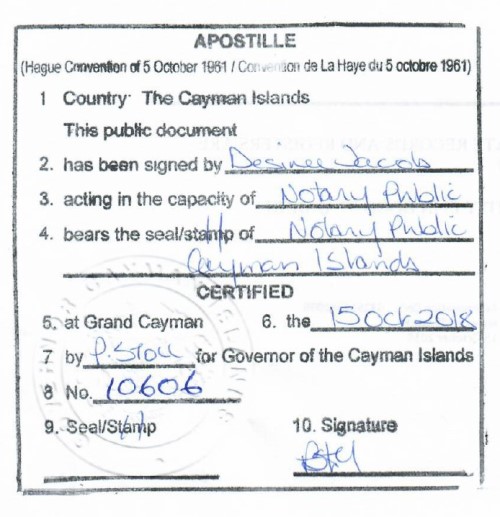 APOSTILLE
(Hague Convention of 5 October 1961 / Convention de La Haye du 5 octobre 1961)
1 Country: The Cayman Islands
This public document
2. has been signed by Desiree Jacobs
3. acting in the capacity of Notary Public
4. bears the seal/stamp of Notary Public
Cayman Islands
CERTIFIED
5. at Grand Cayman 6. the 15 Oct 2018
7 by P. Stoll for Governor of the Cayman Islands
8 No. 10606
9. Seal/Stamp 10. Signature